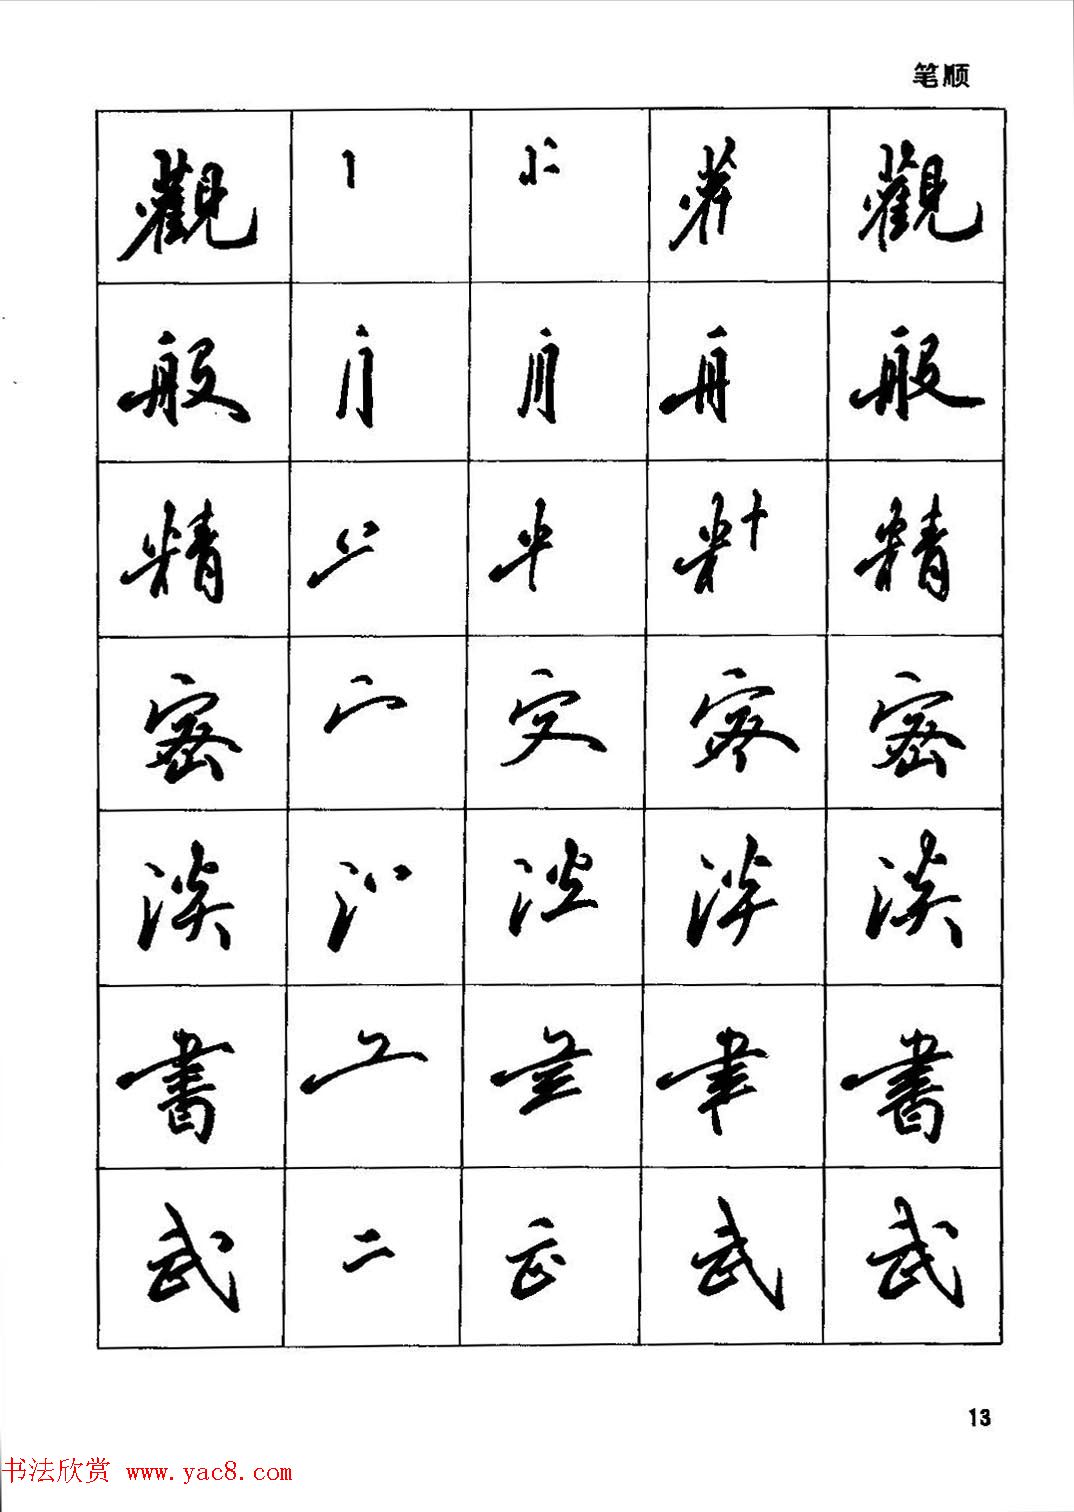 笔顺
觀 觀
般 般
精 精
密 宀 密
淡 淡
書 書
武 二 武 武
13
书法欣赏 www.yac8.com